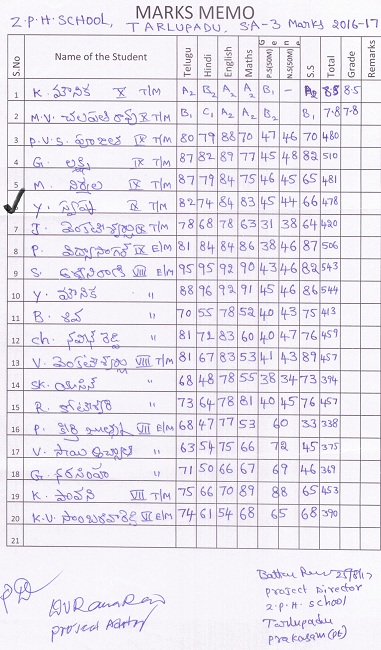 MARKS MEMO
Z.P.H. SCHOOL, TARLUPADU, SA-3 Marks 2016-17
S.No Name of the Student Telugu Hindi English Maths Gene P.S(50M) N.S(50M) S.S Total Grade Remarks
1 K. మౌనిక X T/M A2 B2 A2 A2 B1 - A2 8.8 8.5
2 M.V. X T/M B1 C1 A2 A2 B2 B1 7.8 7.8
3 P.V.S. IX T/M 80 79 88 70 47 46 70 480
4 G. లక్ష్మి IX T/M 87 82 89 77 45 48 82 510
5 M. నిర్మల IX T/M 87 79 84 75 46 45 65 481
6 Y. స్వప్న IX T/M 82 74 84 83 45 44 66 478
7 IX T/M 78 68 78 63 31 38 64 420
8 P. IX E/M 81 84 84 86 38 46 87 506
9 S. VIII E/M 95 95 92 90 43 46 82 543
10 Y. మౌనిక " 88 96 92 91 45 46 86 544
11 B. శివ " 70 55 78 52 40 43 75 413
12 ch. నవీన్ రెడ్డి " 81 72 83 60 40 47 76 459
13 V. VIII T/M 81 67 83 53 41 43 89 457
14 SK. " 68 48 78 55 38 34 73 394
15 R. " 73 64 78 81 40 45 76 457
16 P. VII E/M 68 47 77 53 60 33 338
17 V. సాయి " 63 54 75 66 72 45 375
18 G. నరసింహ " 71 50 66 67 69 46 369
19 K. పావని VII T/M 75 66 70 89 88 65 453
20 K.V. VI E/M 74 61 54 68 65 68 390
21
25/8/17
Project Director
Z.P.H. School
Tarlupadu
Prakasam (Dt)